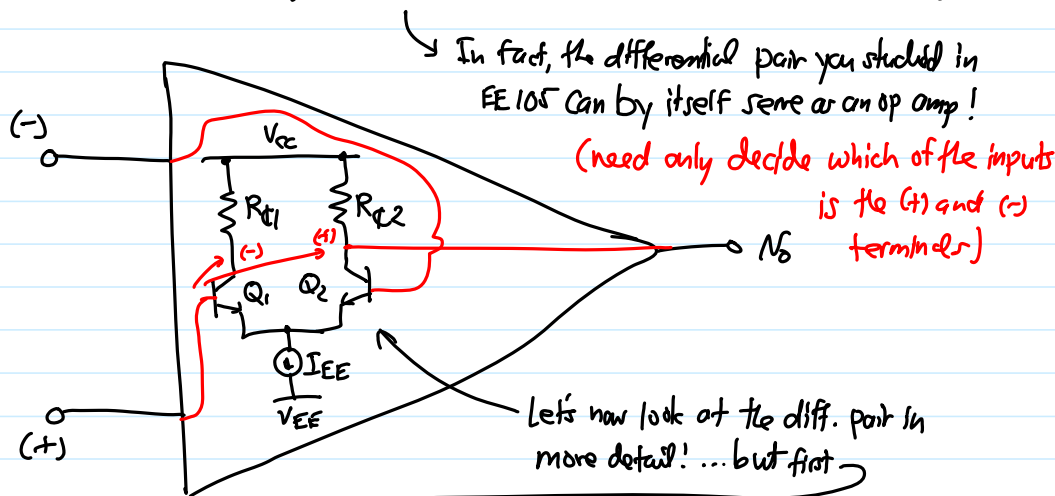 In fact, the differential pair you studied in
EE105 can by itself serve as an op amp!
(-)
Vcc
(need only decide which of the inputs
is the (+) and (-)
terminals)
RC1
RC2
(-)
(+)
Q1
Q2
No
IEE
VEE
(+)
Let's now look at the diff. pair in
more detail! ...but first